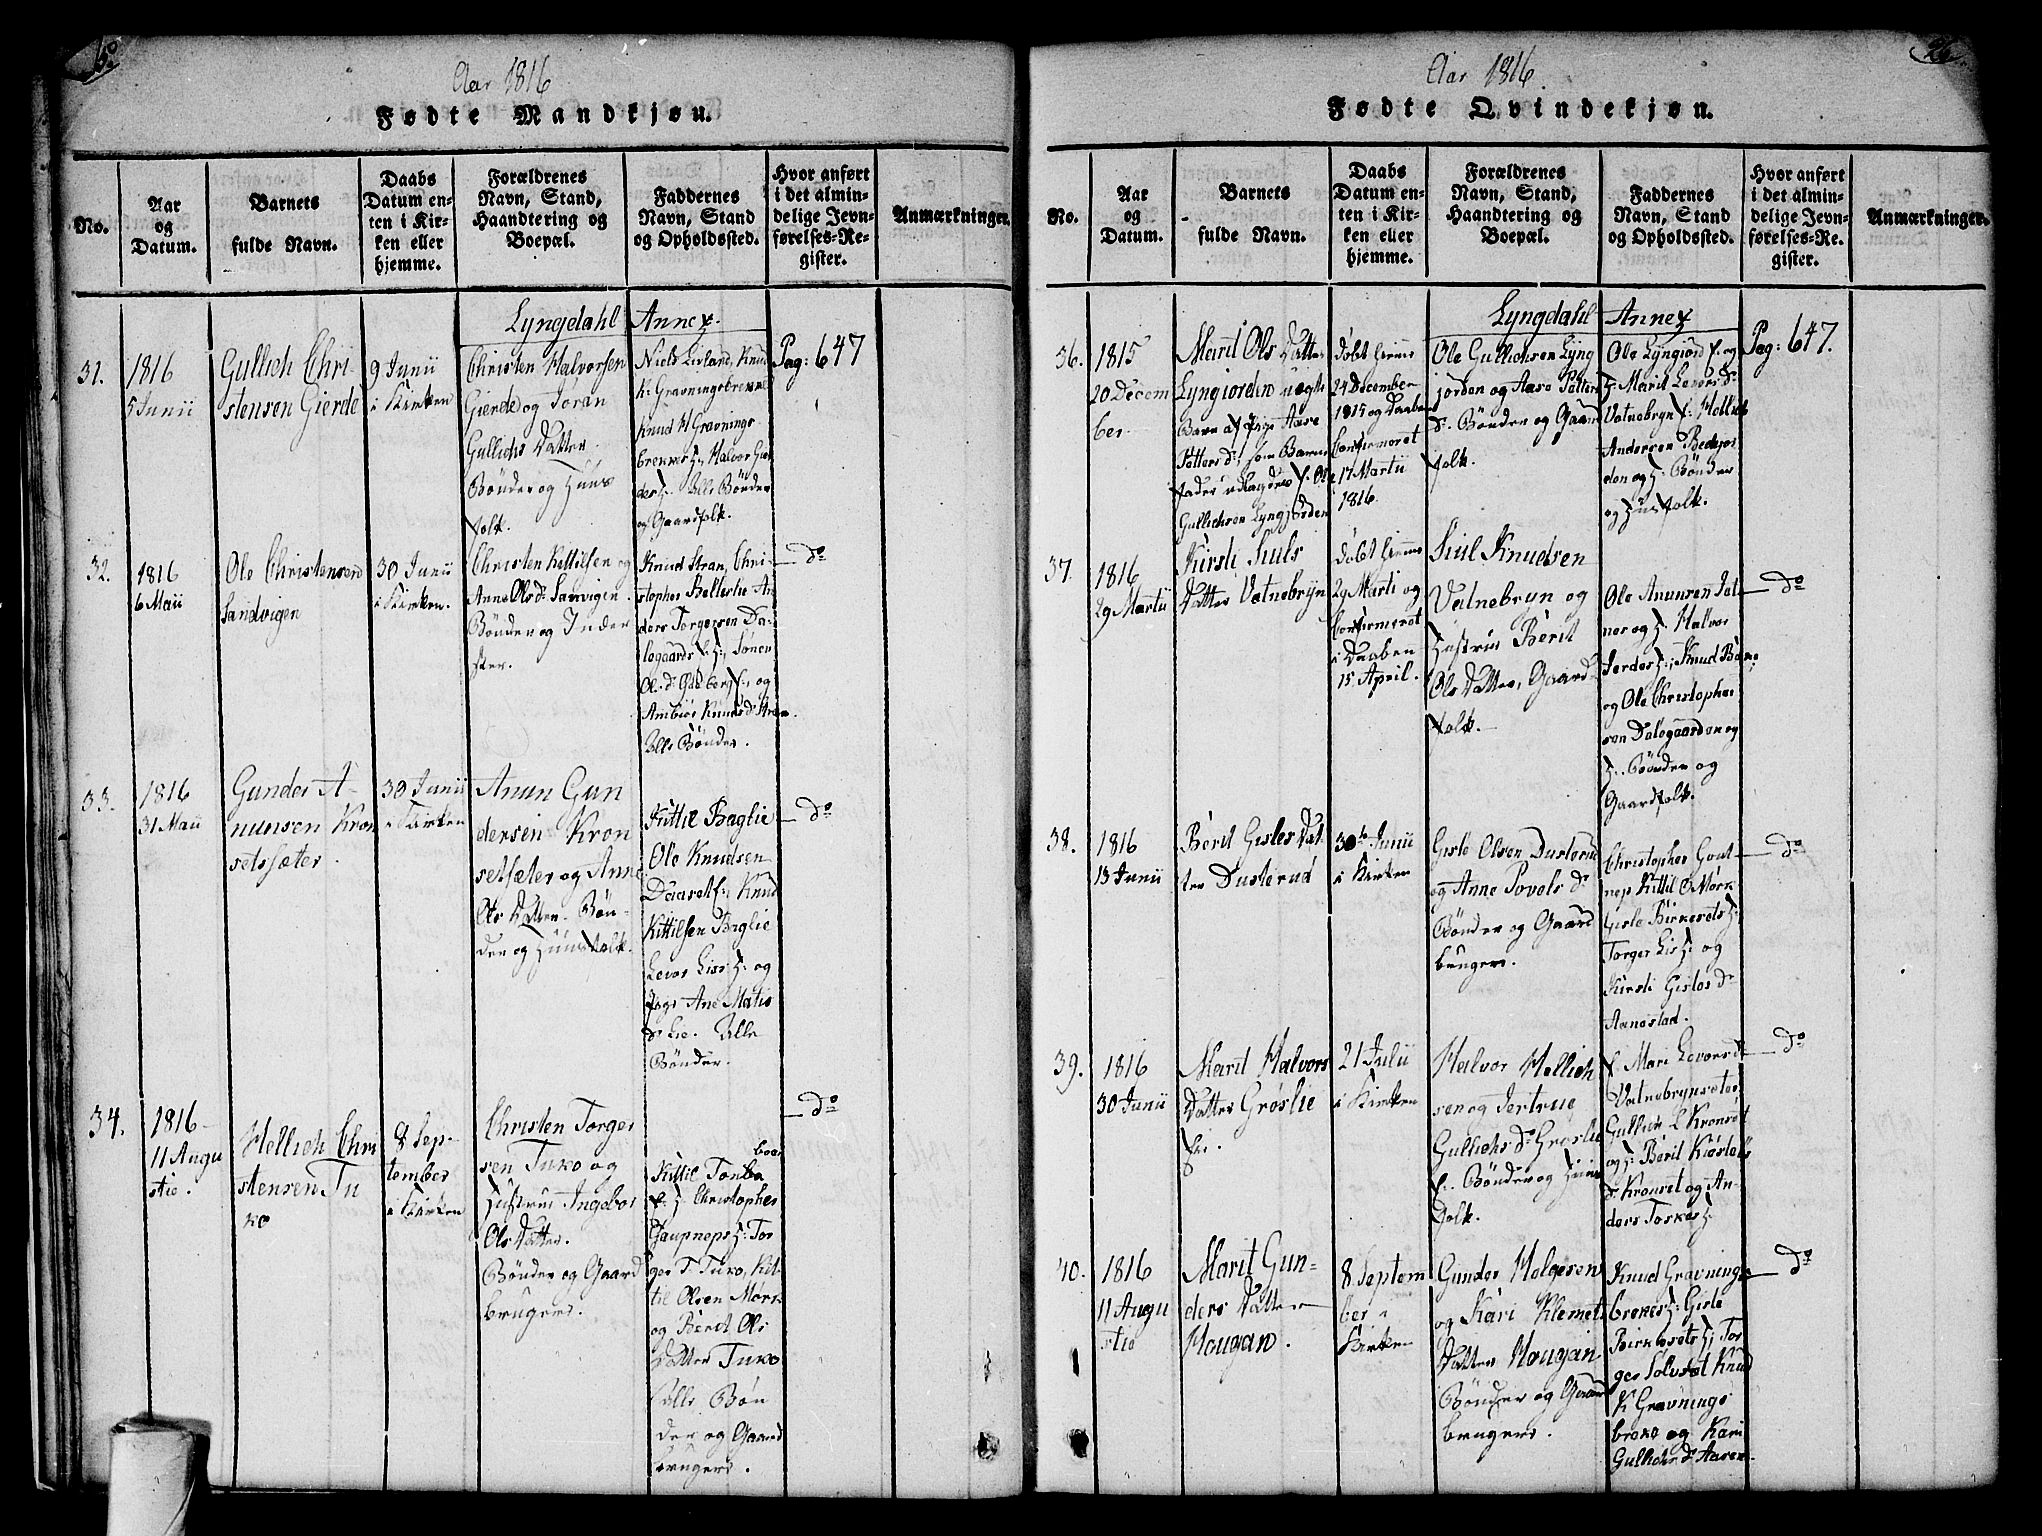 Aar 1816
Fødte Mandkjøn.
No.
Aar
og
Datum.
Barnets
fulde Navn.
Daabs
Datum en-
ten i Kir-
ken eller
hjemme.
Forældrenes
Navn, Stand,
Haandtering og
Boepæl.
Faddernes
Navn, Stand
og Opholdssted.
Hvor anført
i det almin-
delige Jevn-
førelses-Re-
gister.
Anmærkninger.
Lyngdahl Annex
31.
1816
5 Junii
Gullich Chri-
stensen Gierde
9 Junii
i Kirken
Christen Halvorsen
Gierde og Joran
Gullichs Datter
Bønder og Huus
folk.
Niels Lirland, Knud
K. Gravningsbrekke
Knud H Gravnings-
brekke H: Halvor Gier
des H: Alle Bønder
og Gaardfolk.
Pag: 647
32.
1816
6 Maii
Ole Christensen
Sandvigen
30 Junii
i Kirken.
Christen Kittilsen og
Anne Ols D: Sanvigen
Bønder og Inder
ster.
Knud Stran, Chri-
stopher Bellerlie An
ders Torgersen Da-
legaards H:
Ols D: Ødeberg og
Ambiør Knuds D: Stran.
Alle Bønder.
do
33.
1816
31 Maii
Gunder A-
nunsen Kron
setsæter.
30 Junii
i Kirken
Anun Gun
dersen Kron
setsæter og Anne
Ols Datter. Bøn-
der og Huusfolk.
Kittil Baglie
Ole Knudsen
Daaset Knud
Kittilsen Baglie
Levor Lies H: og
Pige Ane Matis
D: Lie. Alle
Bønder.
do
34.
1816
11 Augu
stio.
Hellich Chri
stensen Tu
ko
8 Sep-
tember
i Kirken
Christen Torger
sen Tuko og
Hustrue Ingebor
Ols Datter.
Bønder og Gaard
brugere.
Kittil Tonbo
H: Christopher
Gaupneps H: Tor
ger T: Tuko, Kit-
til Olsen Mørk
og Berit Ols
Datter Tuko
Alle Bøn
der og Gaard
brugere.
do
Aar 1816
26.
Fødte Qvindekjøn.
No.
Aar
og
Datum.
Barnets
fulde Navn.
Daabs
Datum en-
ten i Kir-
ken eller
hjemme.
Forældrenes
Navn, Stand,
Haandtering og
Boepæl.
Faddernes
Navn, Stand
og Opholdssted.
Hvor anført
i det almin-
delige Jevn-
førelses-Re-
gister.
Anmærkninger.
Lyngdahl Annex
36.
1815
20 Decem
ber
Marit Ols Datter
Lyngiorden uægte
Barn af Pige Aase
Petters D:, som Barne
fader udlagdes Ole
Gullichsen Lyngjorden
Døbt hiemme
24 December
1815 og Daaben
confirmeret
17 Martii
1816.
Ole Gullichsen Lyng
jorden og Aase Petters
D: Bønder og Gaard
folk.
Ole Lyngiord og
H: Marit Levors D:
Vatnebryn Hellich
Andersen Bechjor
den og H: Bønder
og Huusfolk.
Pag: 647.
37.
1816
29 Martii
Kirsti Siuls
Datter Vatnebryn
Døbt hiemme
29 Marti og
confirmeret
i Daaben
15 April.
Siul Knudsen
Vatnebryn og
Hustrue Berit
Ols Datter, Gaard-
folk.
Ole Anunsen
og H: Halvor
Jordes H: Knud
og Ole Christopher
sen Dalegaarden og
H: Bønder og
Gaardfolk.
do
38.
1816
13 Junii
Berit Gisles Dat
ter Dusterud
30te Junii
i Kirken
Gisle Olsen Dusterud
og Anne Povels D:
Bønder og Gaard
brugere.
Christopher Gout
nep Kittil O Mørk
Gisle Birkesets H:
Torger Lis H: og
Kirsti Gisles D:
Aanestad.
do
39.
1816
30 Junii
Marit Halvors
Datter Grøslie
21 Julii
i Kirken
Halvor Hellich
sen og Jertrue
Gullichs D: Grøslie
Bønder og Huus
folk.
Mari Levors D:
Vatnebrynseter
Gullich L Kronset
og H: Berit
D: Kronset og An-
ders Toskes H:
do
40.
1816
11 Augu
stio
Marit Gun-
ders Datter
Hougan.
8 Septem
ber i
Kirken
Gunder Helgesen
og Kari Klemets
Datter Hougan
Bønder og Gaard
brugere.
Knud Gravnings
brekes H: Gisle
Birkesets H: Tor
ger Solvset Knud
K Gravnings
breke og Kari
Gullichs D: Aasen.
do